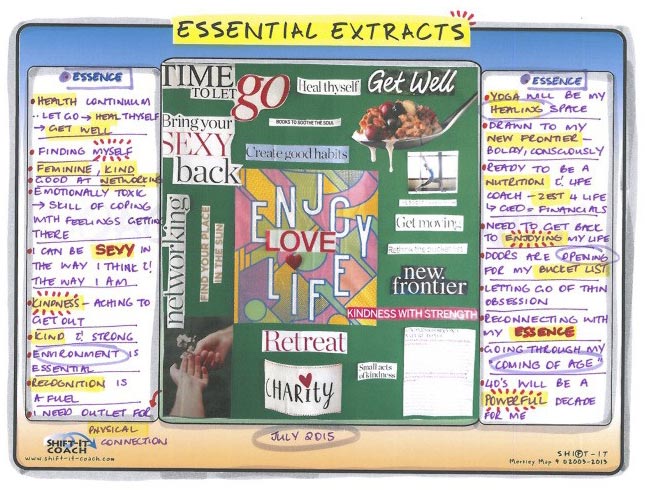 ESSENTIAL EXTRACTS
ESSENCE
• HEALTH CONTINUUM
.. LET GO → HEAL THYSELF
→ GET WELL
• FINDING MYSELF
• FEMININE, KIND
• GOOD AT NETWORKING
• EMOTIONALLY TOXIC
→ SKILL OF COPING
WITH FEELINGS GETTING
THERE
• I CAN BE SEXY IN
THE WAY I THINK &
THE WAY I AM
• KINDNESS - ACHING TO
GET OUT
• KIND & STRONG
• ENVIRONMENT IS
ESSENTIAL
• RECOGNITION IS
A FUEL
• I NEED OUTLET FOR
PHYSICAL
CONNECTION
TIME
TO LET
go
Heal thyself
Get Well
BOOKS TO SOOTHE THE SOUL
Bring your
SEXY
back
Create good habits
networking
FIND YOUR PLACE
IN THE SUN
ENJOY
LOVE
LIFE
Get moving
new
frontier
KINDNESS WITH STRENGTH
Retreat
Small acts
of kindness
CHARITY
ESSENCE
• YOGA WILL BE MY
HEALING SPACE
• DRAWN TO MY
NEW FRONTIER -
BOLDLY, CONSCIOUSLY
• READY TO BE A
NUTRITION & LIFE
COACH - ZEST 4 LIFE
= FINANCIALS
• NEED TO GET BACK
TO ENJOYING MY LIFE
• DOORS ARE OPENING
FOR MY BUCKET LIST
• LETTING GO OF THIN
OBSESSION
• RECONNECTING WITH
MY ESSENCE
• GOING THROUGH MY
"COMING OF AGE"
• 40'S WILL BE A
POWERFUL DECADE
FOR ME
SHIFT-IT
COACH
www.shift-it-coach.com
JULY 2015
SHIFT-IT
Map 9 ©2003-2013